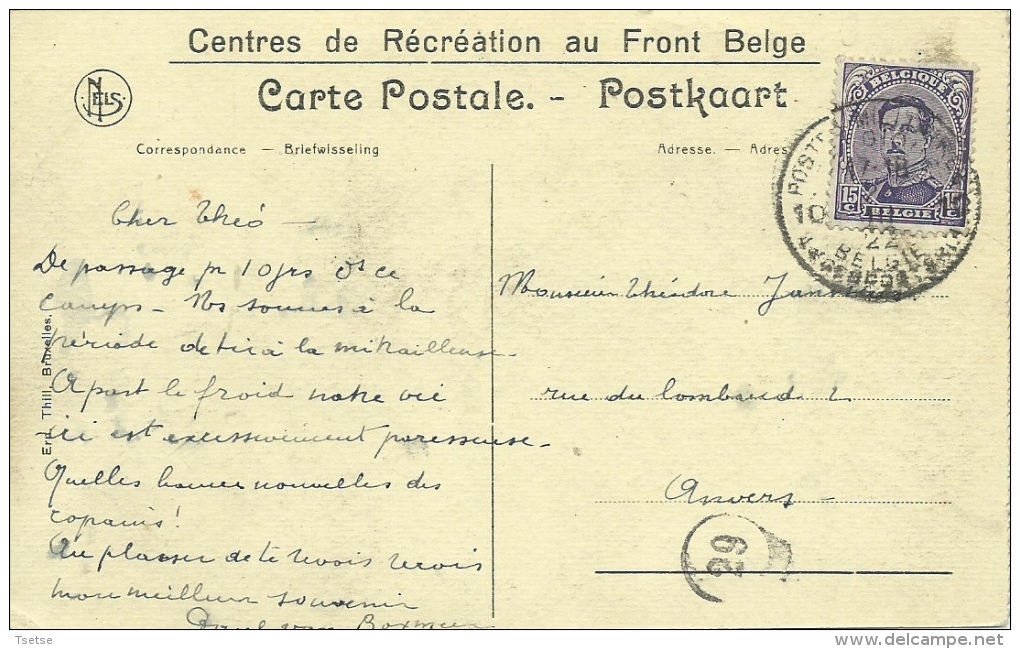 Centres de Récréation au Front Belge
NELS
Carte Postale. - Postkaart
Correspondance — Briefwisseling
Adresse. — Adres
BELGIQUE
15 c
BELGIE
POSTES MILITAIRES
10
22
BELGIE
Cher Théo —
De passage pr 10 jrs ds ce
camps - Ns sommes à la
période de tir à la mitrailleuse.
A part le froid notre vie
ici est excessivement paresseuse -
Quelles bonnes nouvelles des
copains!
Au plaisir de te
mon meilleur souvenir
van Boxmeer
Monsieur Théodore
rue du lombard 2
Anvers -
29
Ern. Thill, Bruxelles.
Tsetse
delcampe.net